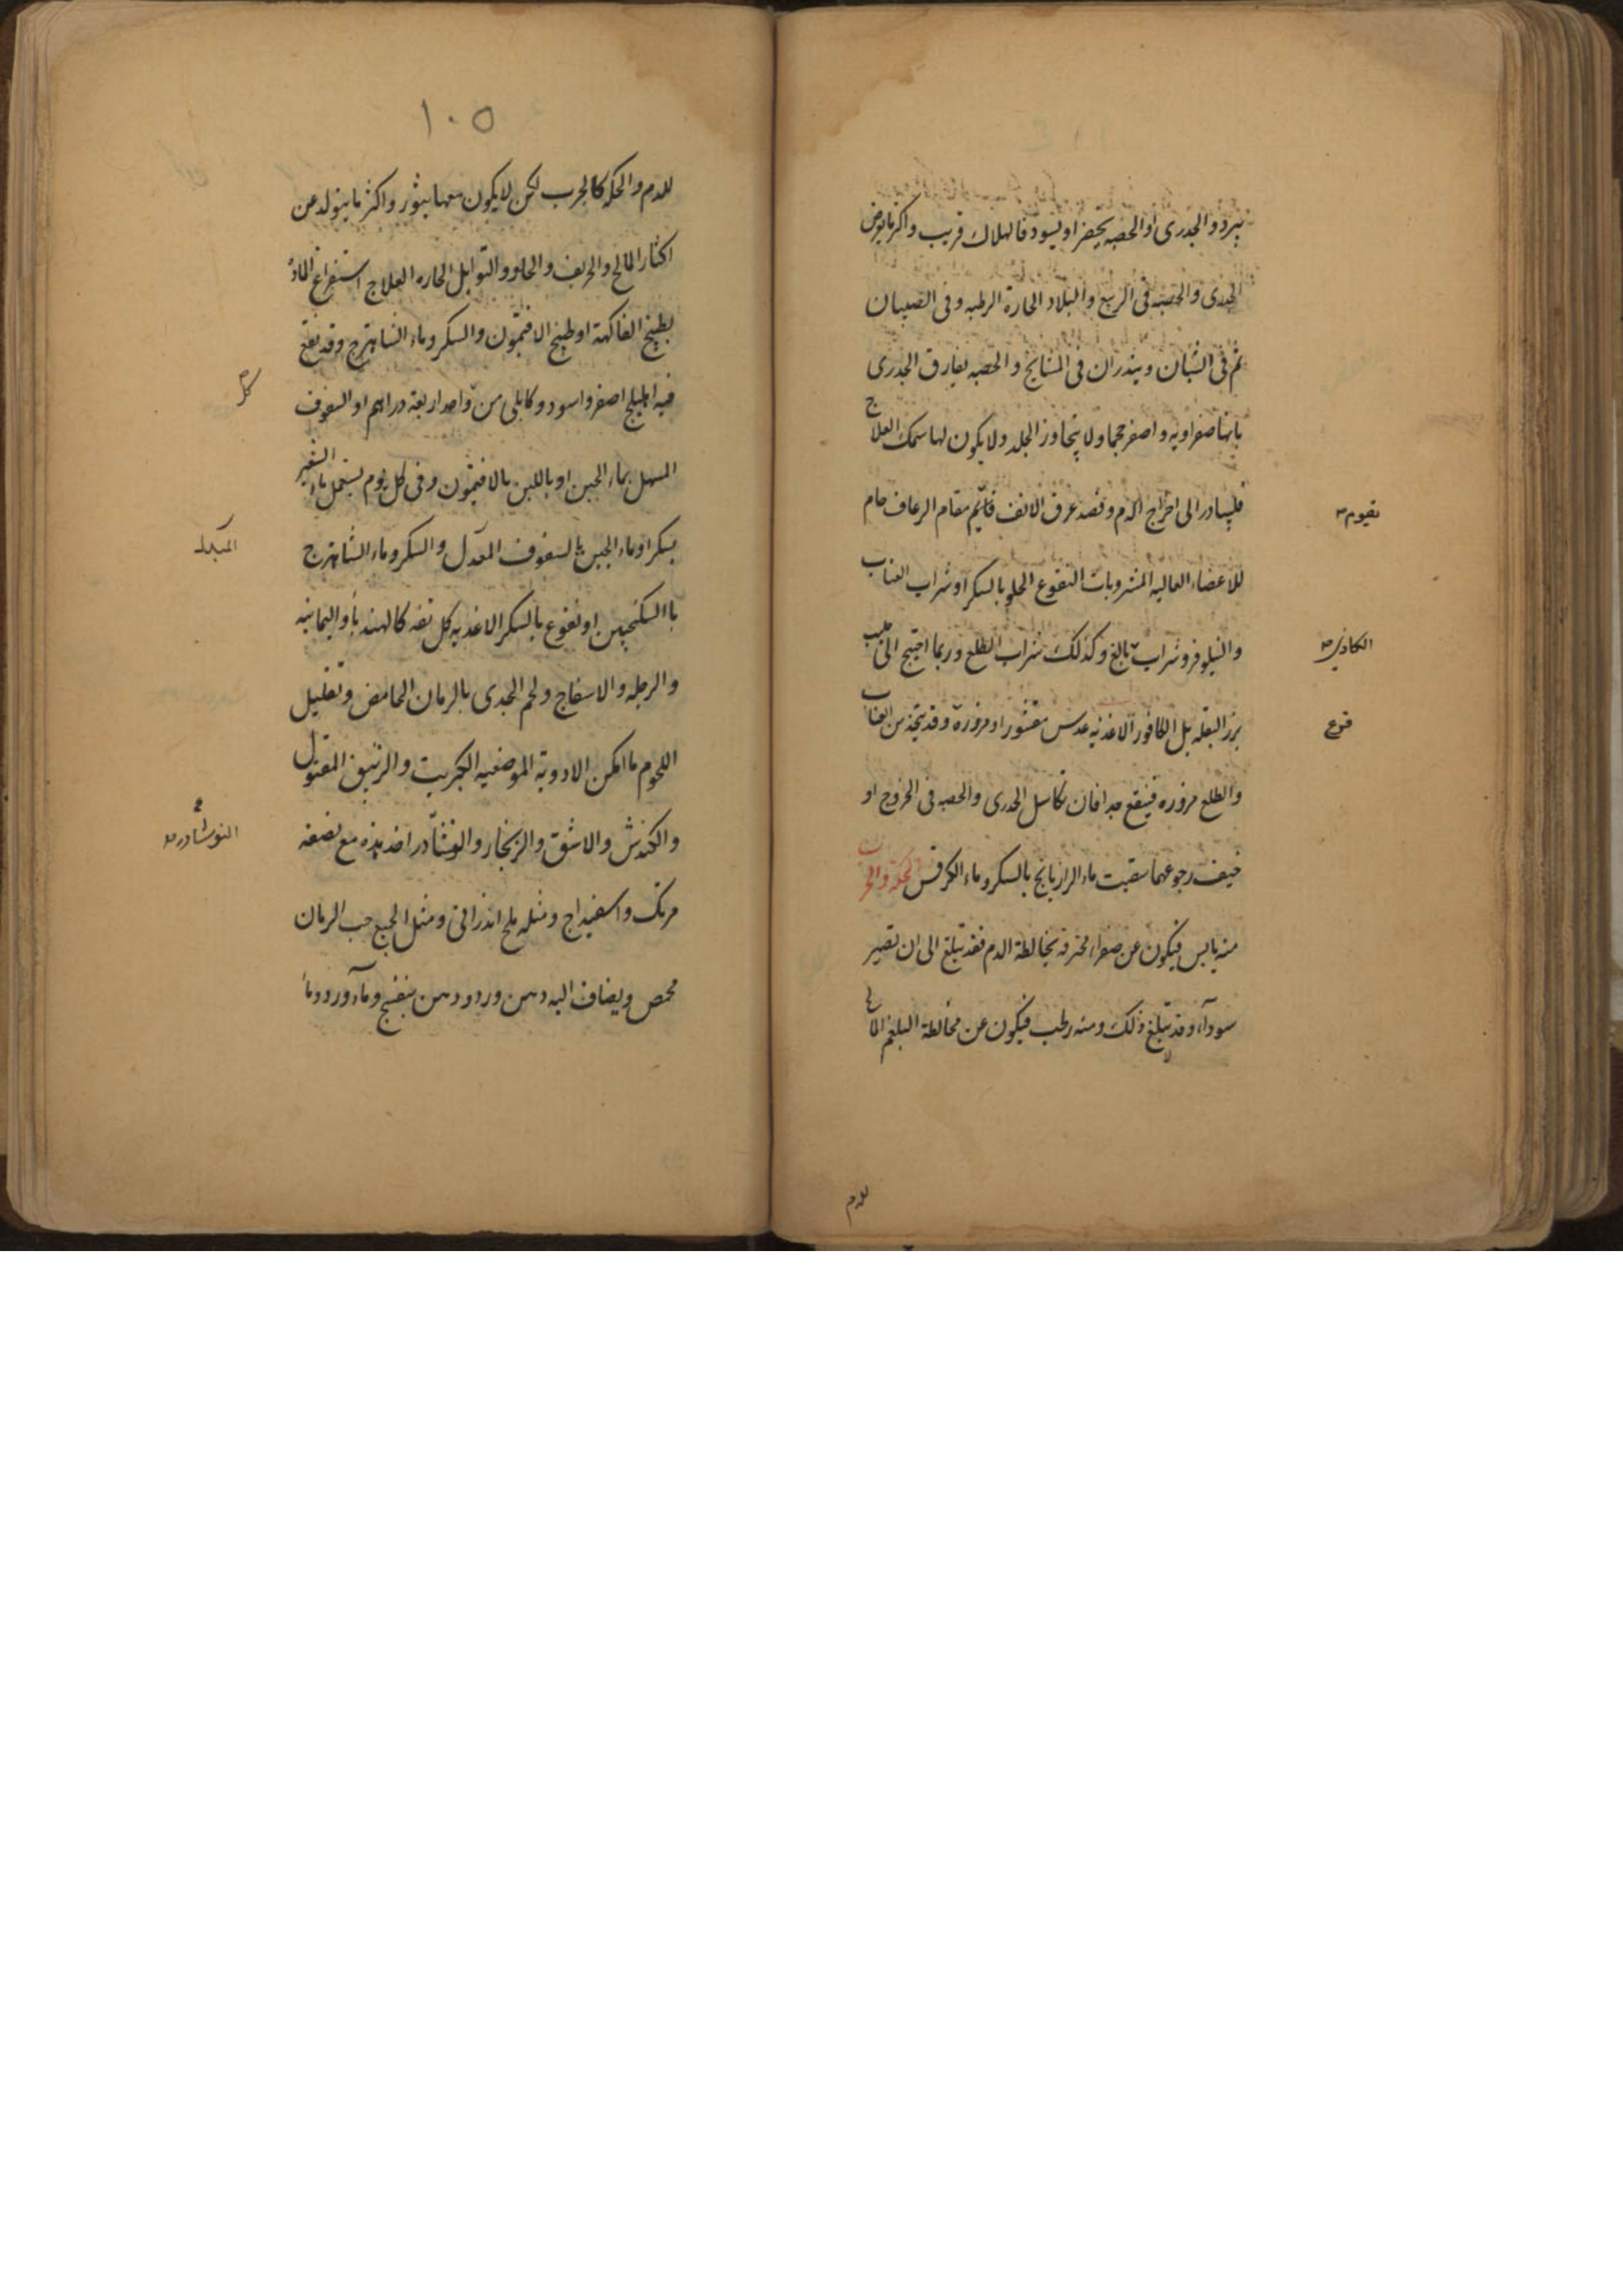 يبرد والجدرى او الحصبه يخضر او يسود فالهلاك قريب واكثر ما يعرض
الجدرى والحصبه فى الربيع والبلاد الحارة الرطبه وفى الصبيان
ثم فى الشبان ويندران فى المشايخ والحصبه يفارق الجدرى
بانها صفراويه واصغر حجما ولا يتجاوز الجلد ولا يكون لها سمك العلاج
فليبادر الى اخراج الدم وفصد عرق الانف قايم مقام الرعاف حام
يقوم
للاعضاء العاليه المشروبات النقوع الحلو بالسكر او شراب العناب
والنيلوفر وشراب بالغ وكذلك شراب الطلع وربما احتيج الى حليب
الكادى
بزر البقله بل الكافور الاغذيه عدس مقشور او مزورة وقد يتخذ من العناب
قرع
والطلع مزوره فينفع جدا فان تكاسل الجدرى والحصبه فى الخروج او
خيف رجوعهما سقيت ماء الرازيانج بالسكر وماء الكرفس الحكة والجرب
منه يابس فيكون عن صفراء محترقة بمخالطة الدم فقد تبلغ الى ان تصير
سوداء وقد لا تبلغ ذلك ومنه رطب فيكون عن مخالطة البلغم المالح
للدم
١٠٥
للدم والحكه كالجرب لكن لا يكون معها بثور واكثر ما يتولد عن
اكثار المالح والحريف والحلو والتوابل الحاره العلاج استفراغ المادة
بطبيخ الفاكهة او طبيخ الافتيمون والسكر وماء الشاهترج وقد نقع
فيه اهليلج اصفر واسود وكابلى من واحد اربعة دراهم او السفوف
كل
المسهل بماء الجبن او باللبن بالافتيمون وفى كل يوم يستعمل ماء الشعير
بسكر او ماء الجبن بالسفوف المعدل والسكر وماء الشاهترج
المبدل
باالسكنجبين او نقوع بالسكر الاغذيه كل تفه كالهندبا واليمانيه
والرجله والاسفاج ولحم الجدى بالرمان الحامض وتقليل
اللحوم ما امكن الادوية الموضعيه الكبريت والزيبق المقتول
والكندش والاشق والزنجار والنوشادر اخذ هذه مع نصفه
النوشادر
مرتك واسفيداج ومثله ملح اندرانى ومثل الجميع حب الرمان
محمص ويضاف اليه دهن ورد ودهن بنفسج وماء ورد وماء